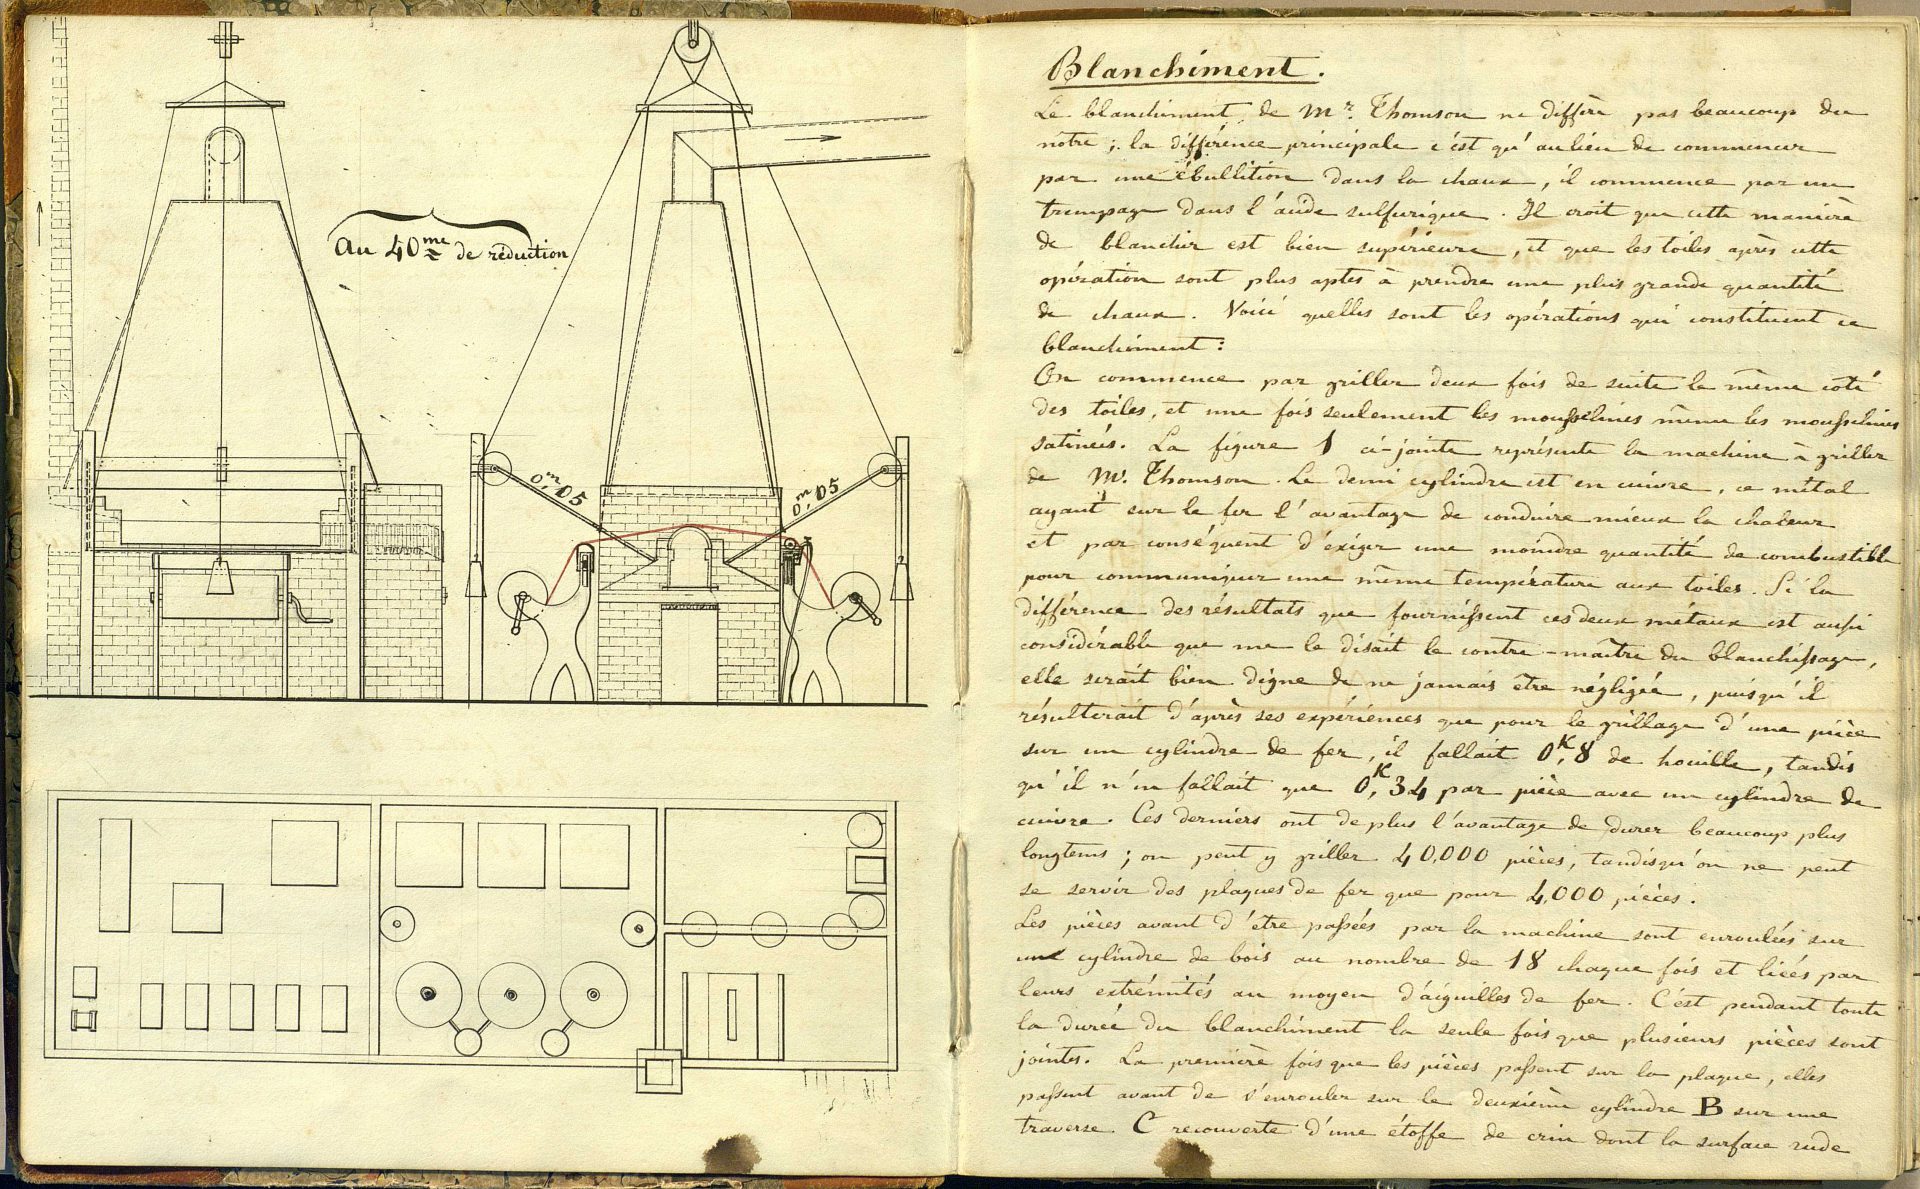 au 40me de réduction
0,m05
0,m05
Blanchiment.
Le blanchiment de Mr. Thomson ne diffère pas beaucoup du
nôtre ; la différence principale c'est qu'aulieu de commencer
par une ébullition dans la chaux, il commence par un
trempage dans l'acide sulfurique. Il croit que cette manière
de blanchir est bien supérieure, et que les toiles après cette
opération sont plus aptes à prendre une plus grande quantité
de chaux. Voici quelles sont les opérations qui constituent ce
blanchiment :
On commence par griller deux fois de suite le même côté
des toiles, et une fois seulement les mousselines même les mousselines
satinées. La figure 1 ci-jointe représente la machine à griller
de Mr. Thomson. Le demi cylindre est en cuivre, ce métal
ayant sur le fer l'avantage de conduire mieux la chaleur
et par conséquent d'exiger une moindre quantité de combustible
pour communiquer une même température aux toiles. Si la
différence des résultats que fournissent ces deux métaux est aussi
considérable que me le disait le contre-maître du blanchissage,
elle serait bien digne de ne jamais être négligée, puisqu'il
résulterait d'après ses expériences que pour le grillage d'une pièce
sur un cylindre de fer, il fallait 0,K8 de houille, tandis
qu'il n'en fallait que 0,K34 par pièce avec un cylindre de
cuivre. Ces derniers ont deplus l'avantage de durer beaucoup plus
longtems ; on peut y griller 40,000 pièces, tandisqu'on ne peut
se servir des plaques de fer que pour 4,000 pièces.
Les pièces avant d'être passées par la machine sont enroulées sur
un cylindre de bois au nombre de 18 chaque fois et liées par
leurs extrémités au moyen d'aiguilles de fer. C'est pendant toute
la durée du blanchiment la seule fois que plusieurs pièces sont
jointes. La première fois que les pièces passent sur la plaque, elles
passent avant de s'enrouler sur le deuxième cylindre B sur une
traverse C recouverte d'une étoffe de crin dont la surface rude